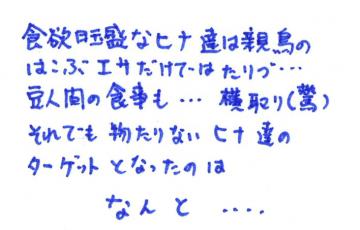 食欲旺盛なヒナ達は親鳥の
はこぶエサだけではたりづ…
豆人間の食事も… 横取り(驚)
それでも物たりないヒナ達の
ターゲットとなったのは
なんと ‥‥